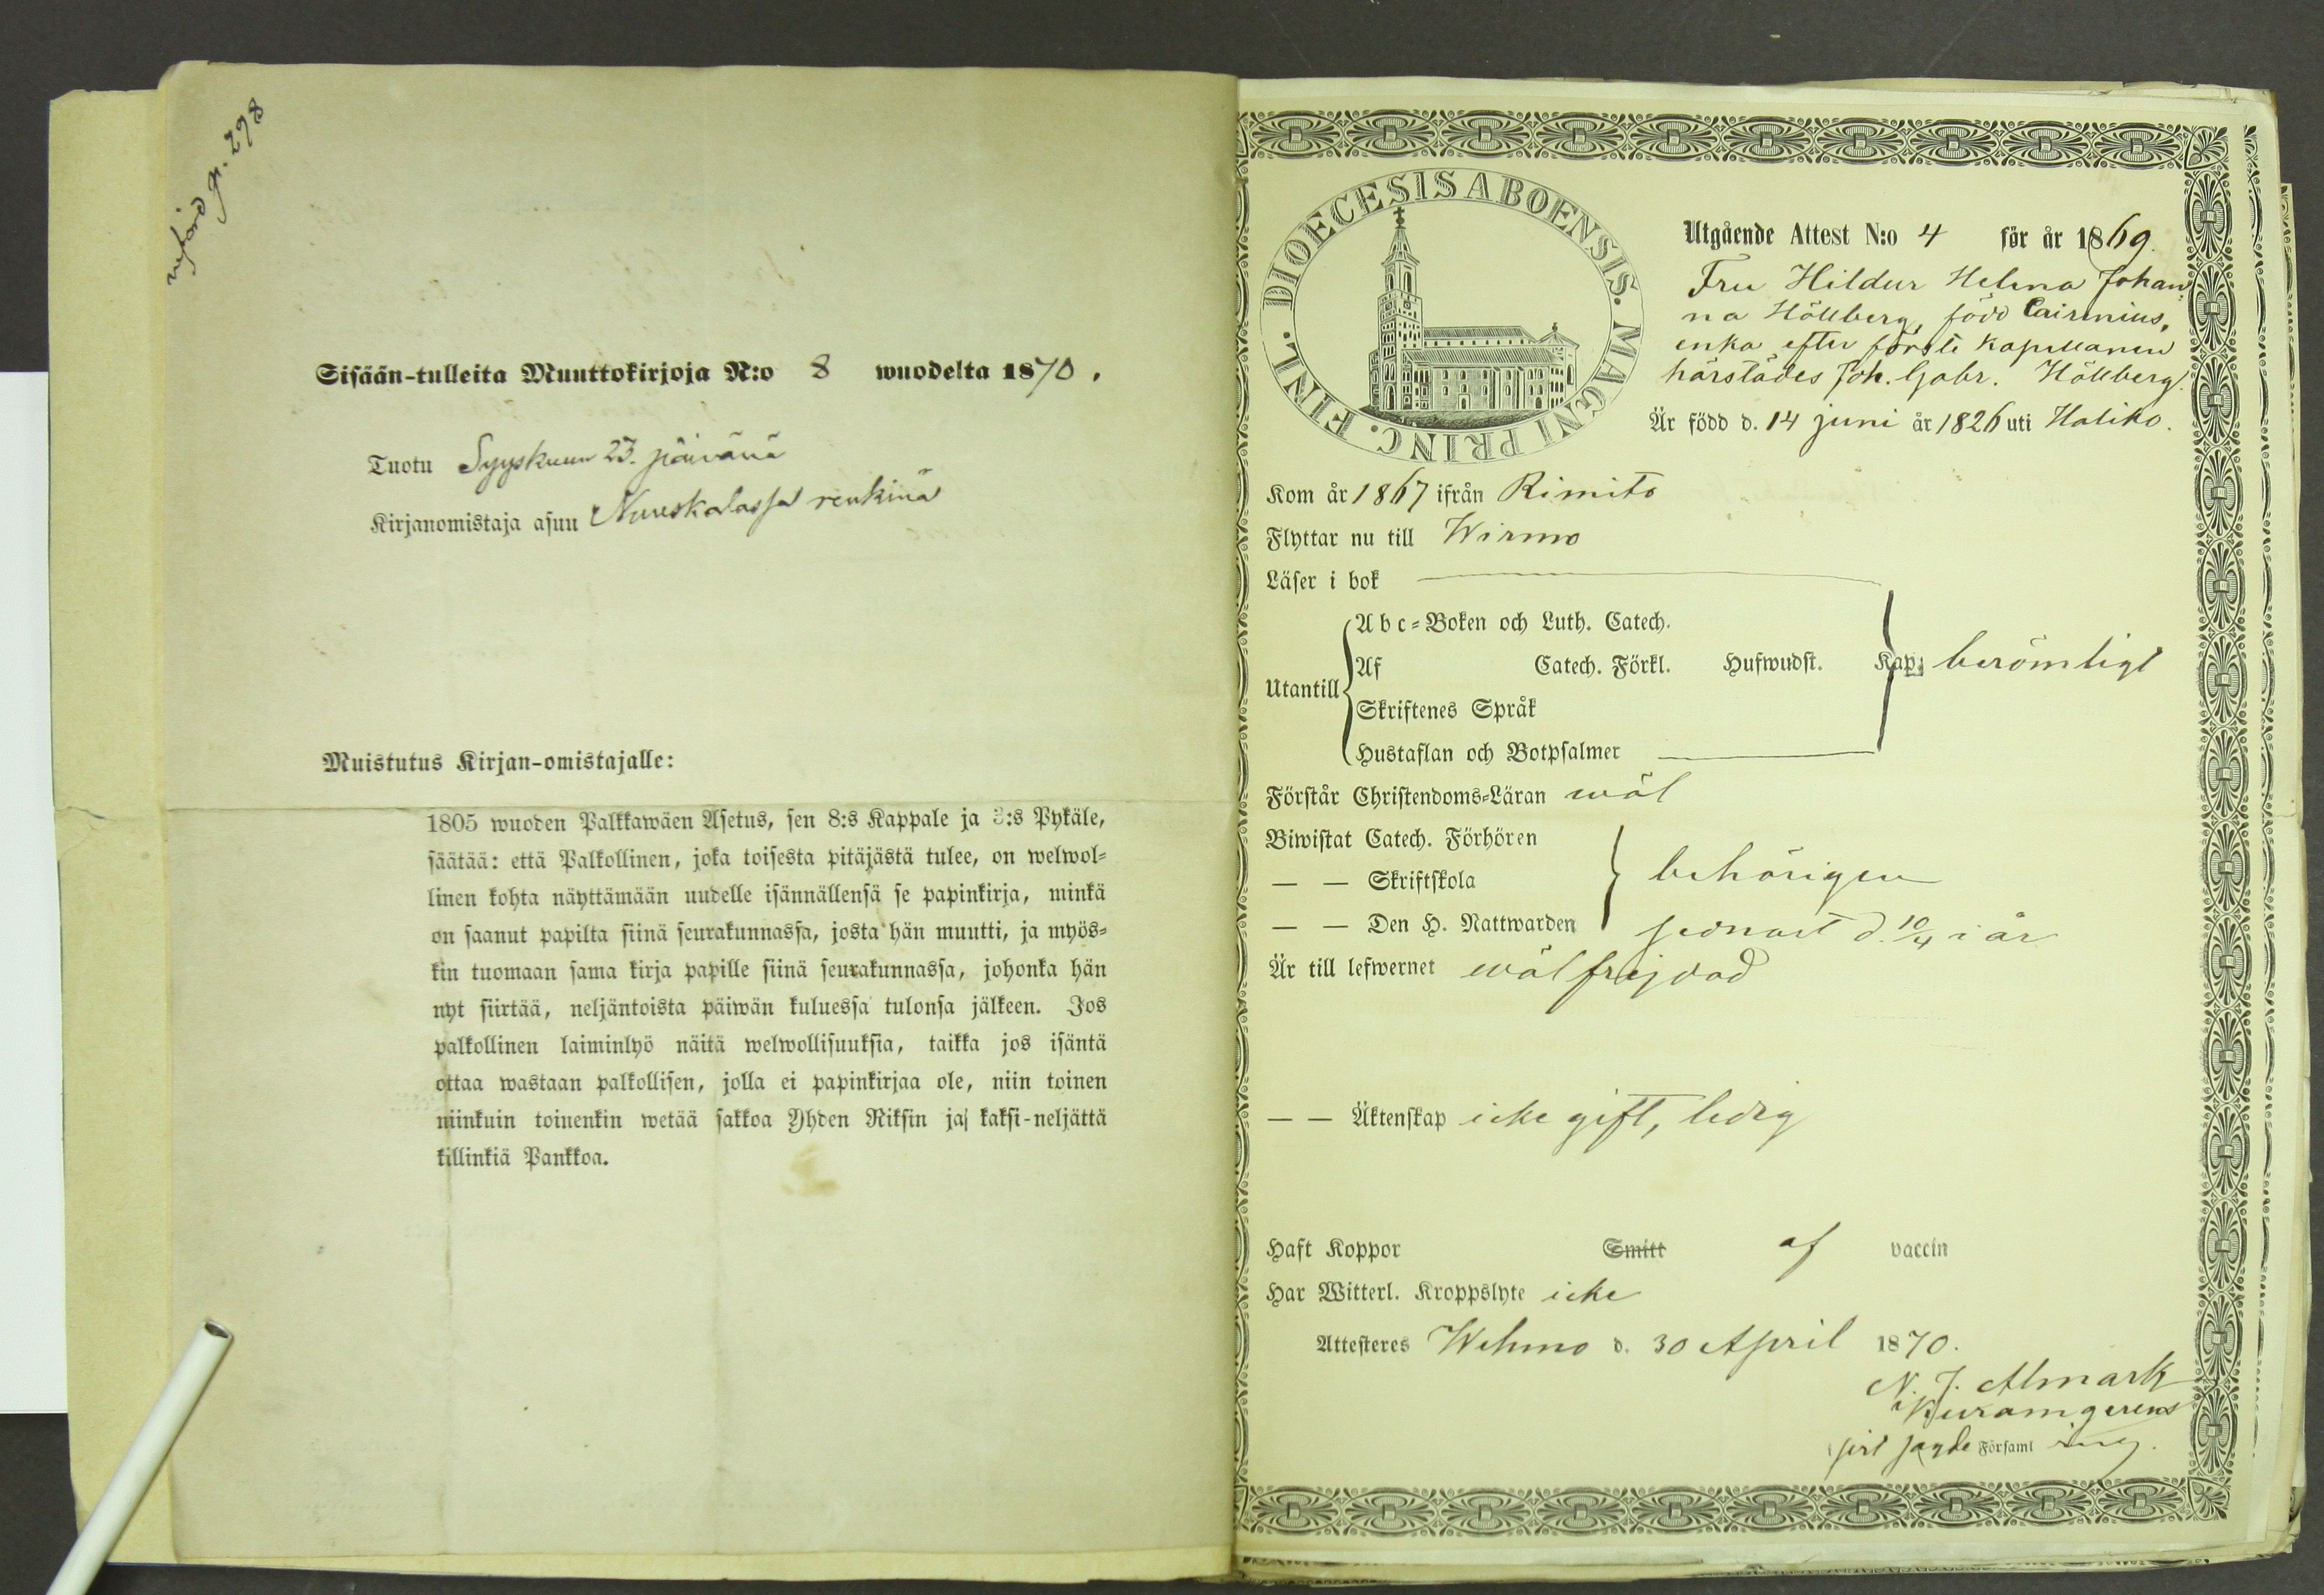 införd p. 298
Sisään-tulleita Muuttokirjoja N:o 8 wuodelta 1870.
Tuotu Syyskuun 23. päivänä
Kirjanomistaja asuu renkinä
Muistutus Kirjan-omistajalle:
1805 wuoden Palkkawäen Asetus, sen 8:s Kappale ja 3:s Pykäle,
säätää: että Palkollinen, joka toisesta pitäjästä tulee, on welwol=
linen kohta näyttämään uudelle isännällensä se papinkirja, minkä
on saanut papilta siinä seurakunnassa, josta hän muutti, ja myös=
kin tuomaan sama kirja papille siinä seurakunnassa, johonka hän
nyt siirtää, neljäntoista päiwän kuluessa tulonsa jälkeen. Jos
palkollinen laiminlyö näitä welwollisuuksia, taikka jos isäntä
ottaa wastaan palkollisen, jolla ei papinkirjaa ole, niin toinen
niinkuin toinenkin wetää sakkoa Yhden Riksin ja kaksi-neljättä
killinkiä Pankkoa.
DIOECESIS ABOENSIS. MAGNI PRINC. FINL.
Utgående Attest N:o 4 för år 1869.
Fru Hildur Helena Johan=
na Höckberg, född
enka efter förste Kapellanen
härstädes Joh. Gabr. Höckberg.
Är född d. 14 juni år 1826 uti Haliko.
Kom år 1867 ifrån Rimito
Flyttar nu till Wirmo
Läser i bok
Utantill
Abc=Boken och Luth. Catech.
Af Catech. Förkl. Hufwudst. Kap. berömligt
Skriftenes Språk
Hustaflan och Botpsalmer
Förstår Christendoms=Läran wäl
Biwistat Catech. Förhören
— — Skriftskola behörigen
— — Den H. Nattwarden sednast d. 10/4 i år
Är till lefwernet wälfrejdad
— — Äktenskap icke gift, ledig
Haft Koppor Smitt af vaccin
Har Witterl. Kroppslyte icke
Attesteres Wehmo d. 30 April 1870.
N. J. Almark
sagde Församl ing.